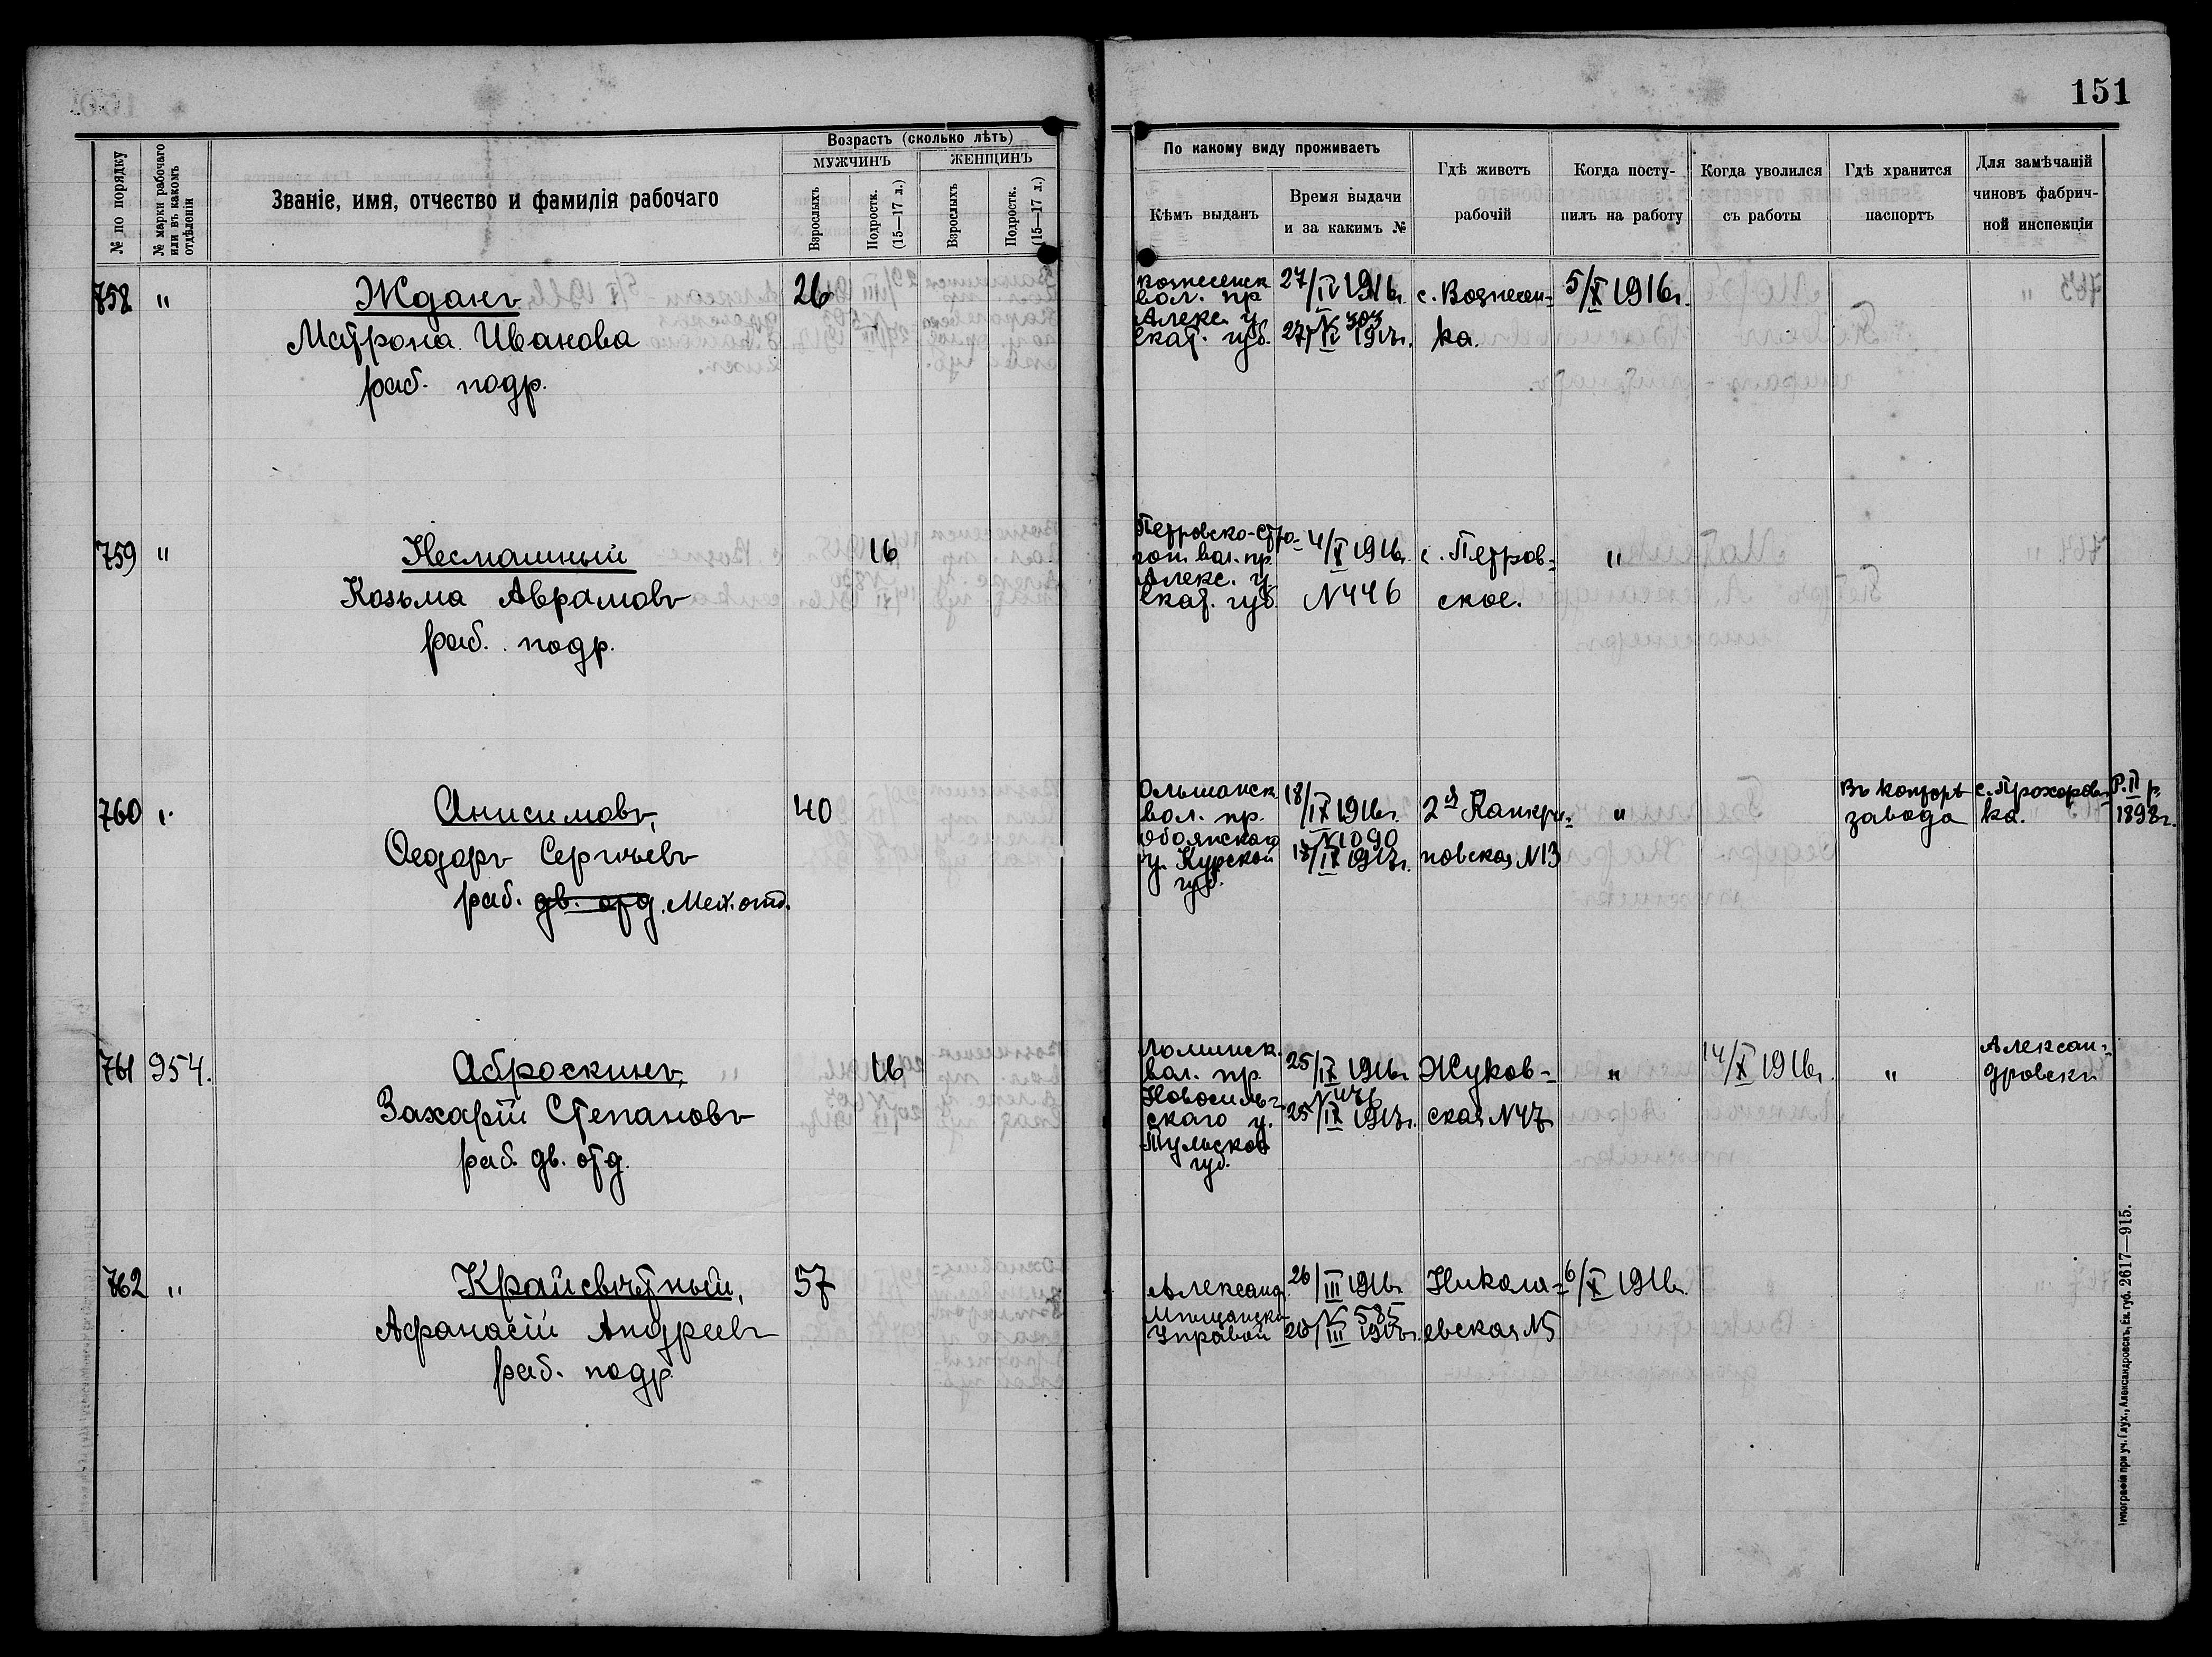 151
№ по порядку
№ марки рабочаго или въ какомъ отдѣленіи
Званіе, имя, отчество и фамилія рабочаго
Возрастъ (сколько лѣтъ)
МУЖЧИНЪ
ЖЕНЩИНЪ
Взрослыхъ
Подростк. (15—17 л.)
Взрослыхъ
Подростк. (15—17 л.)
По какому виду проживаетъ
Кѣмъ выданъ
Время выдачи
и за какимъ №
Гдѣ живетъ
рабочій
Когда посту-
пилъ на работу
Когда уволился
съ работы
Гдѣ хранится
паспортъ
Для замѣчаній
чиновъ фабрич-
ной инспекціи
758 "
Жданъ
Матрона Иванова
раб. подр.
26
вознесенск
вол. пр
Алекс. у.
Екат. губ.
27/IV 1916г.
N 303
27/IV 1917г.
с. Вознесен-
ка.
5/X 1916г.
759 "
Несмашный
Козьма Аврамовъ
раб. подр.
16
Петровско-Сто-
гот вол. пр.
Алекс. у.
Екат. губ.
4/X 1916г.
N 446
с. Петров-
ское.
"
760 "
Анисимовъ,
Ѳедоръ Сергѣевъ
раб. дв. отд. Мех. отд.
40
Ольшанск
вол. пр.
Обоянскаго
у. Курской
губ.
18/IX 1916г.
N 1090
18/IX 1917г.
2ая Канкри-
новская N 13
"
Въ конторѣ
завода
с. Прохоров-
ка.
Р. II р.
1898г.
761 954.
Аброскинъ,
Захарій Степановъ
раб. дв. отд.
16
Ломинск.
вол. пр.
Новосиль-
скаго у.
Тульской
губ.
25/IX 1916г
25/IX 1917г.
Жуков-
ская N 47
"
14/X 1916г.
"
Алексан-
дровскъ
762 "
Крайсвѣтный,
Афанасій Андреевъ
раб. подр.
57
Александ.
Мѣщанской
Управой
26/III 1916г
N 585
26/III 1917г.
Никола-
евская N 5
6/X 1916г.
Типографія при уч. Глух., Александровскъ, Ек. губ. 2617—915.